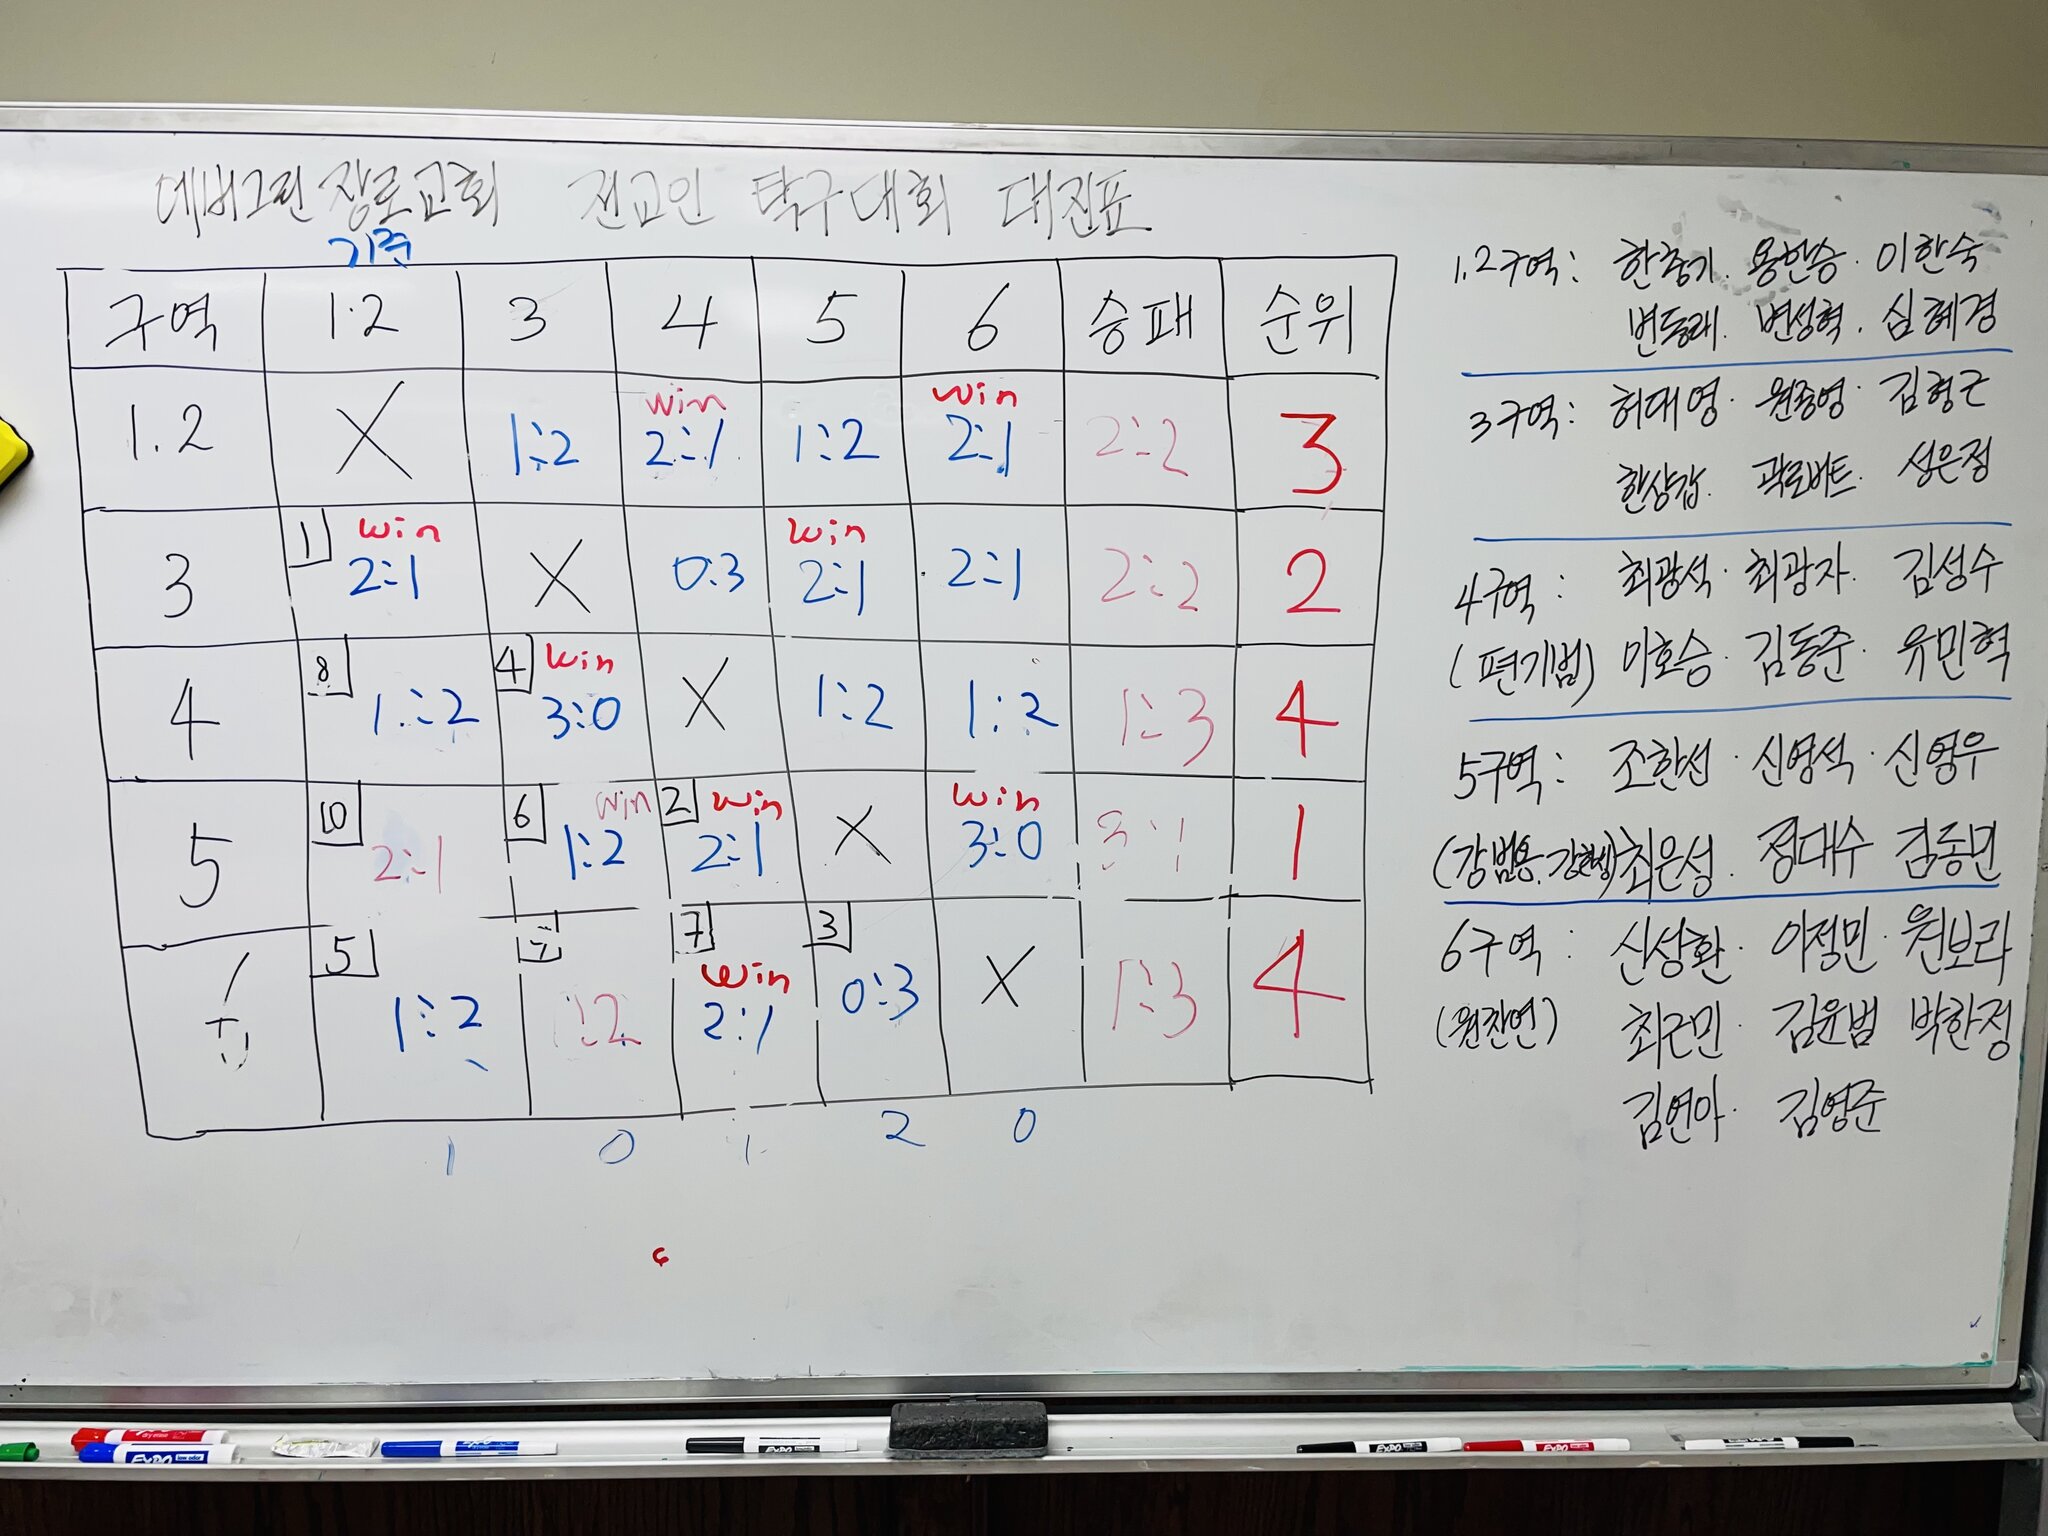 에버그린 장로교회 전교인 탁구대회 대진표
기준
구역 1.2 3 4 5 6 승패 순위
win win
1.2 X 1:2 2:1 1:2 2:1 2:2 3
1 win win
3 2:1 X 0:3 2:1 2:1 2:2 2
8 4 win
4 1:2 3:0 X 1:2 1:2 1:3 4
10 6 win 2 win win
5 2:1 1:2 2:1 X 3:0 3:1 1
5 7 3
win
1:2 1:2 2:1 0:3 X 1:3 4
1 0 1 2 0
1.2구역: 한충기. 용한승. 이한숙
변동래. 변성혁. 심혜경
3구역: 허대영. 원종영. 김형근
한상갑. 곽로버트. 성은정
4구역: 최광석. 최광자. 김성수
(편기범) 이호승. 김동준. 유민혁
5구역: 조한선. 신영석. 신영우
최은성. 정대수 김동민
6구역: 신성환. 이정민. 원보라
(원찬연) 최근민. 김윤범 박한정
김연아. 김영준
EXPO EXPO EXPO EXPO EXPO